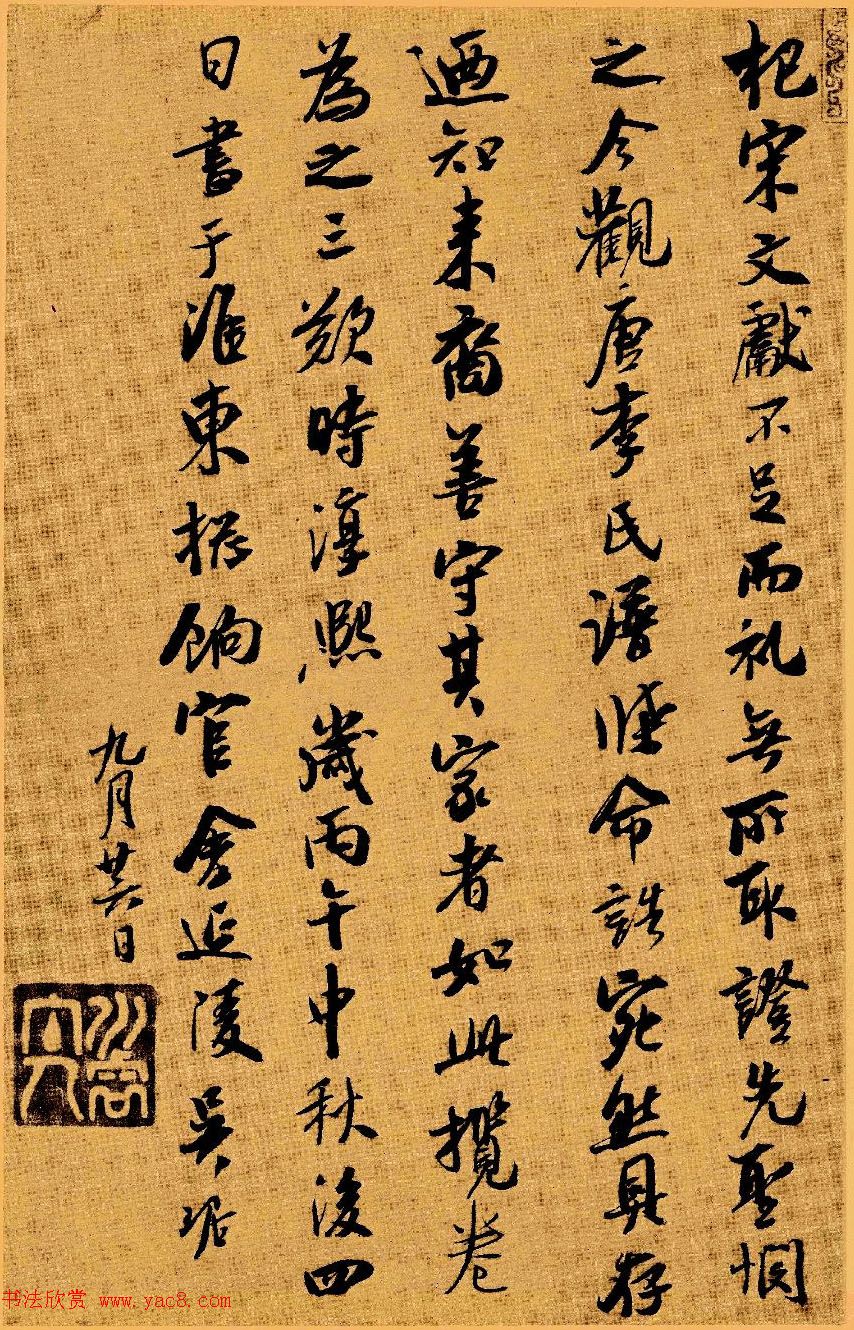 杞宋文獻不足而礼無所取證先聖惘
之今觀唐李氏譜牒命誥宛然具存
迺知来裔善守其家者如此攬卷
為之三歎時淳熙歲丙午中秋後四
日書于淮東揔餉官舍延陵吴琚
九月廿六日
书法欣赏 www.yac8.com